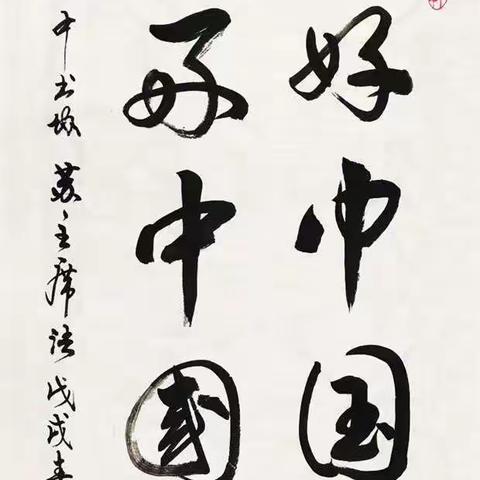 好中国
好中国
中书协苏主席语戊戌春